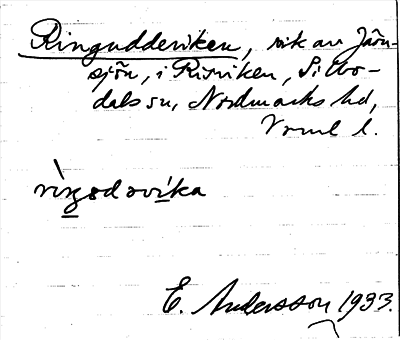 Ringuddeviken, vik av Järn-
sjön, i Risviken, Silbo-
dals sn, Nordmarks hd,
Vrml l.
rìŋodəvíka
E. Andersson 1933.